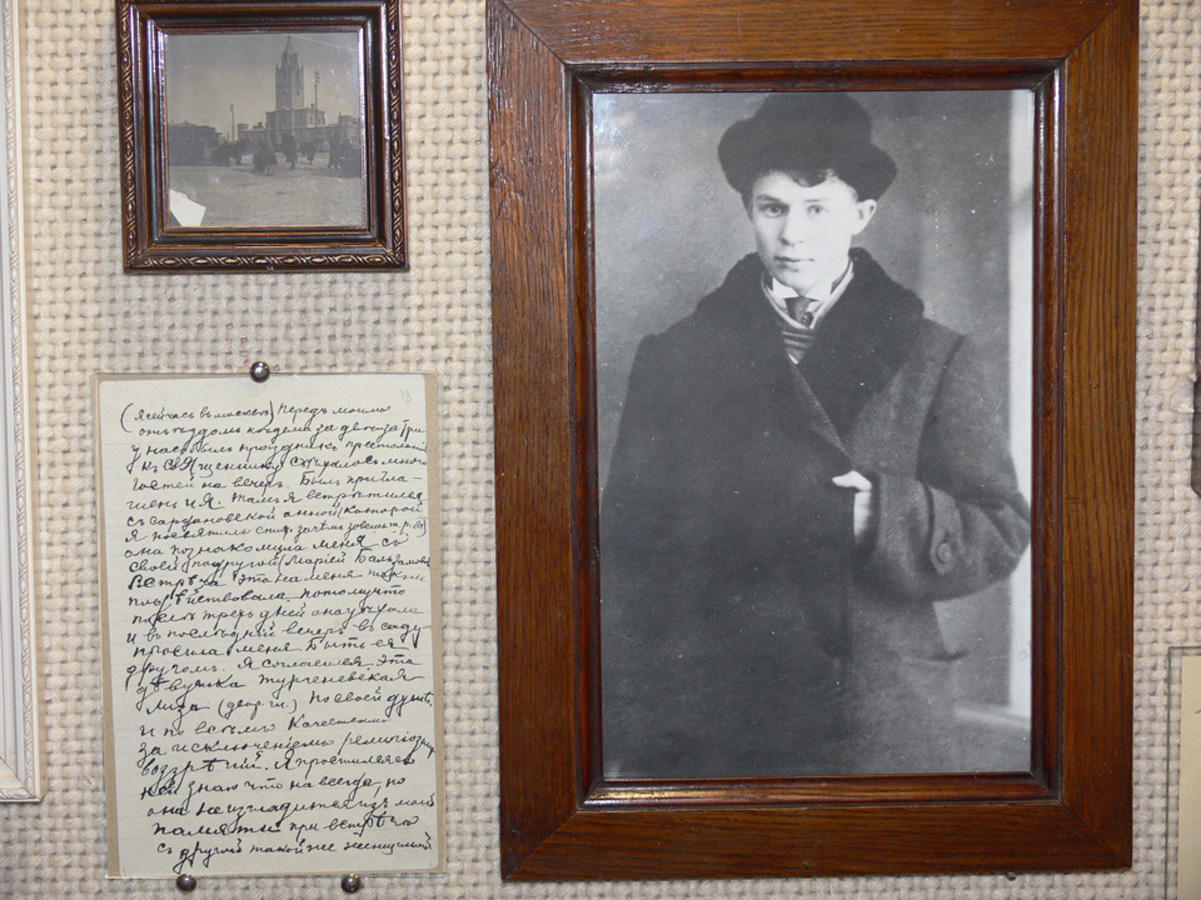 18
(Я сейчасъ въ москвѣ) Передъ моимъ
отъѣздомъ недѣли за двѣ – за три
у насъ былъ праздникъ престольный
къ священнику съѣхалось много
гостей на вечеръ. Былъ пригла-
шенъ и Я. Тамъ я встрѣтился
съ сардановской анной (которой
Я посвятилъ стих. зачѣмъ зовешь т. р. м.)
она познакомила меня съ
своей подругой (Маріей Бальзамовой)
Встрѣча эта на меня также
подѣйствовала, потому что
послѣ трехъ дней она уѣхала
и въ послѣдній вечеръ въ саду
просила меня Быть ея
другомъ. Я согласился. Эта
дѣвушка тургеневская
Лиза (двор. гн.) По своей душѣ.
и по всѣмъ Качествамъ
за исключеніемъ религіозныхъ
воззрѣній. Я простился съ
ней знаю что на всегда, но
она не изгладится изъ моей
памяти при встрѣчѣ
съ другой такой же женщиной